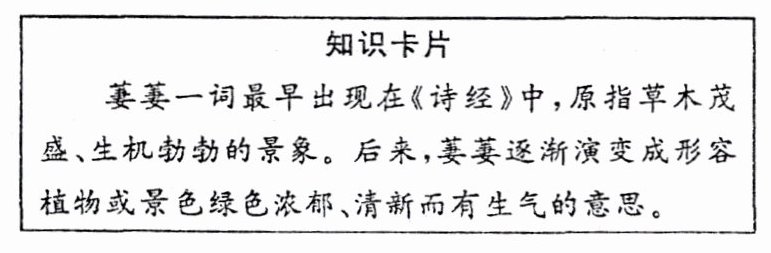 知识卡片
萋萋一词最早出现在《诗经》中，原指草木茂
盛、生机勃勃的景象。后来，萋萋逐渐演变成形容
植物或景色绿色浓郁、清新而有生气的意思。